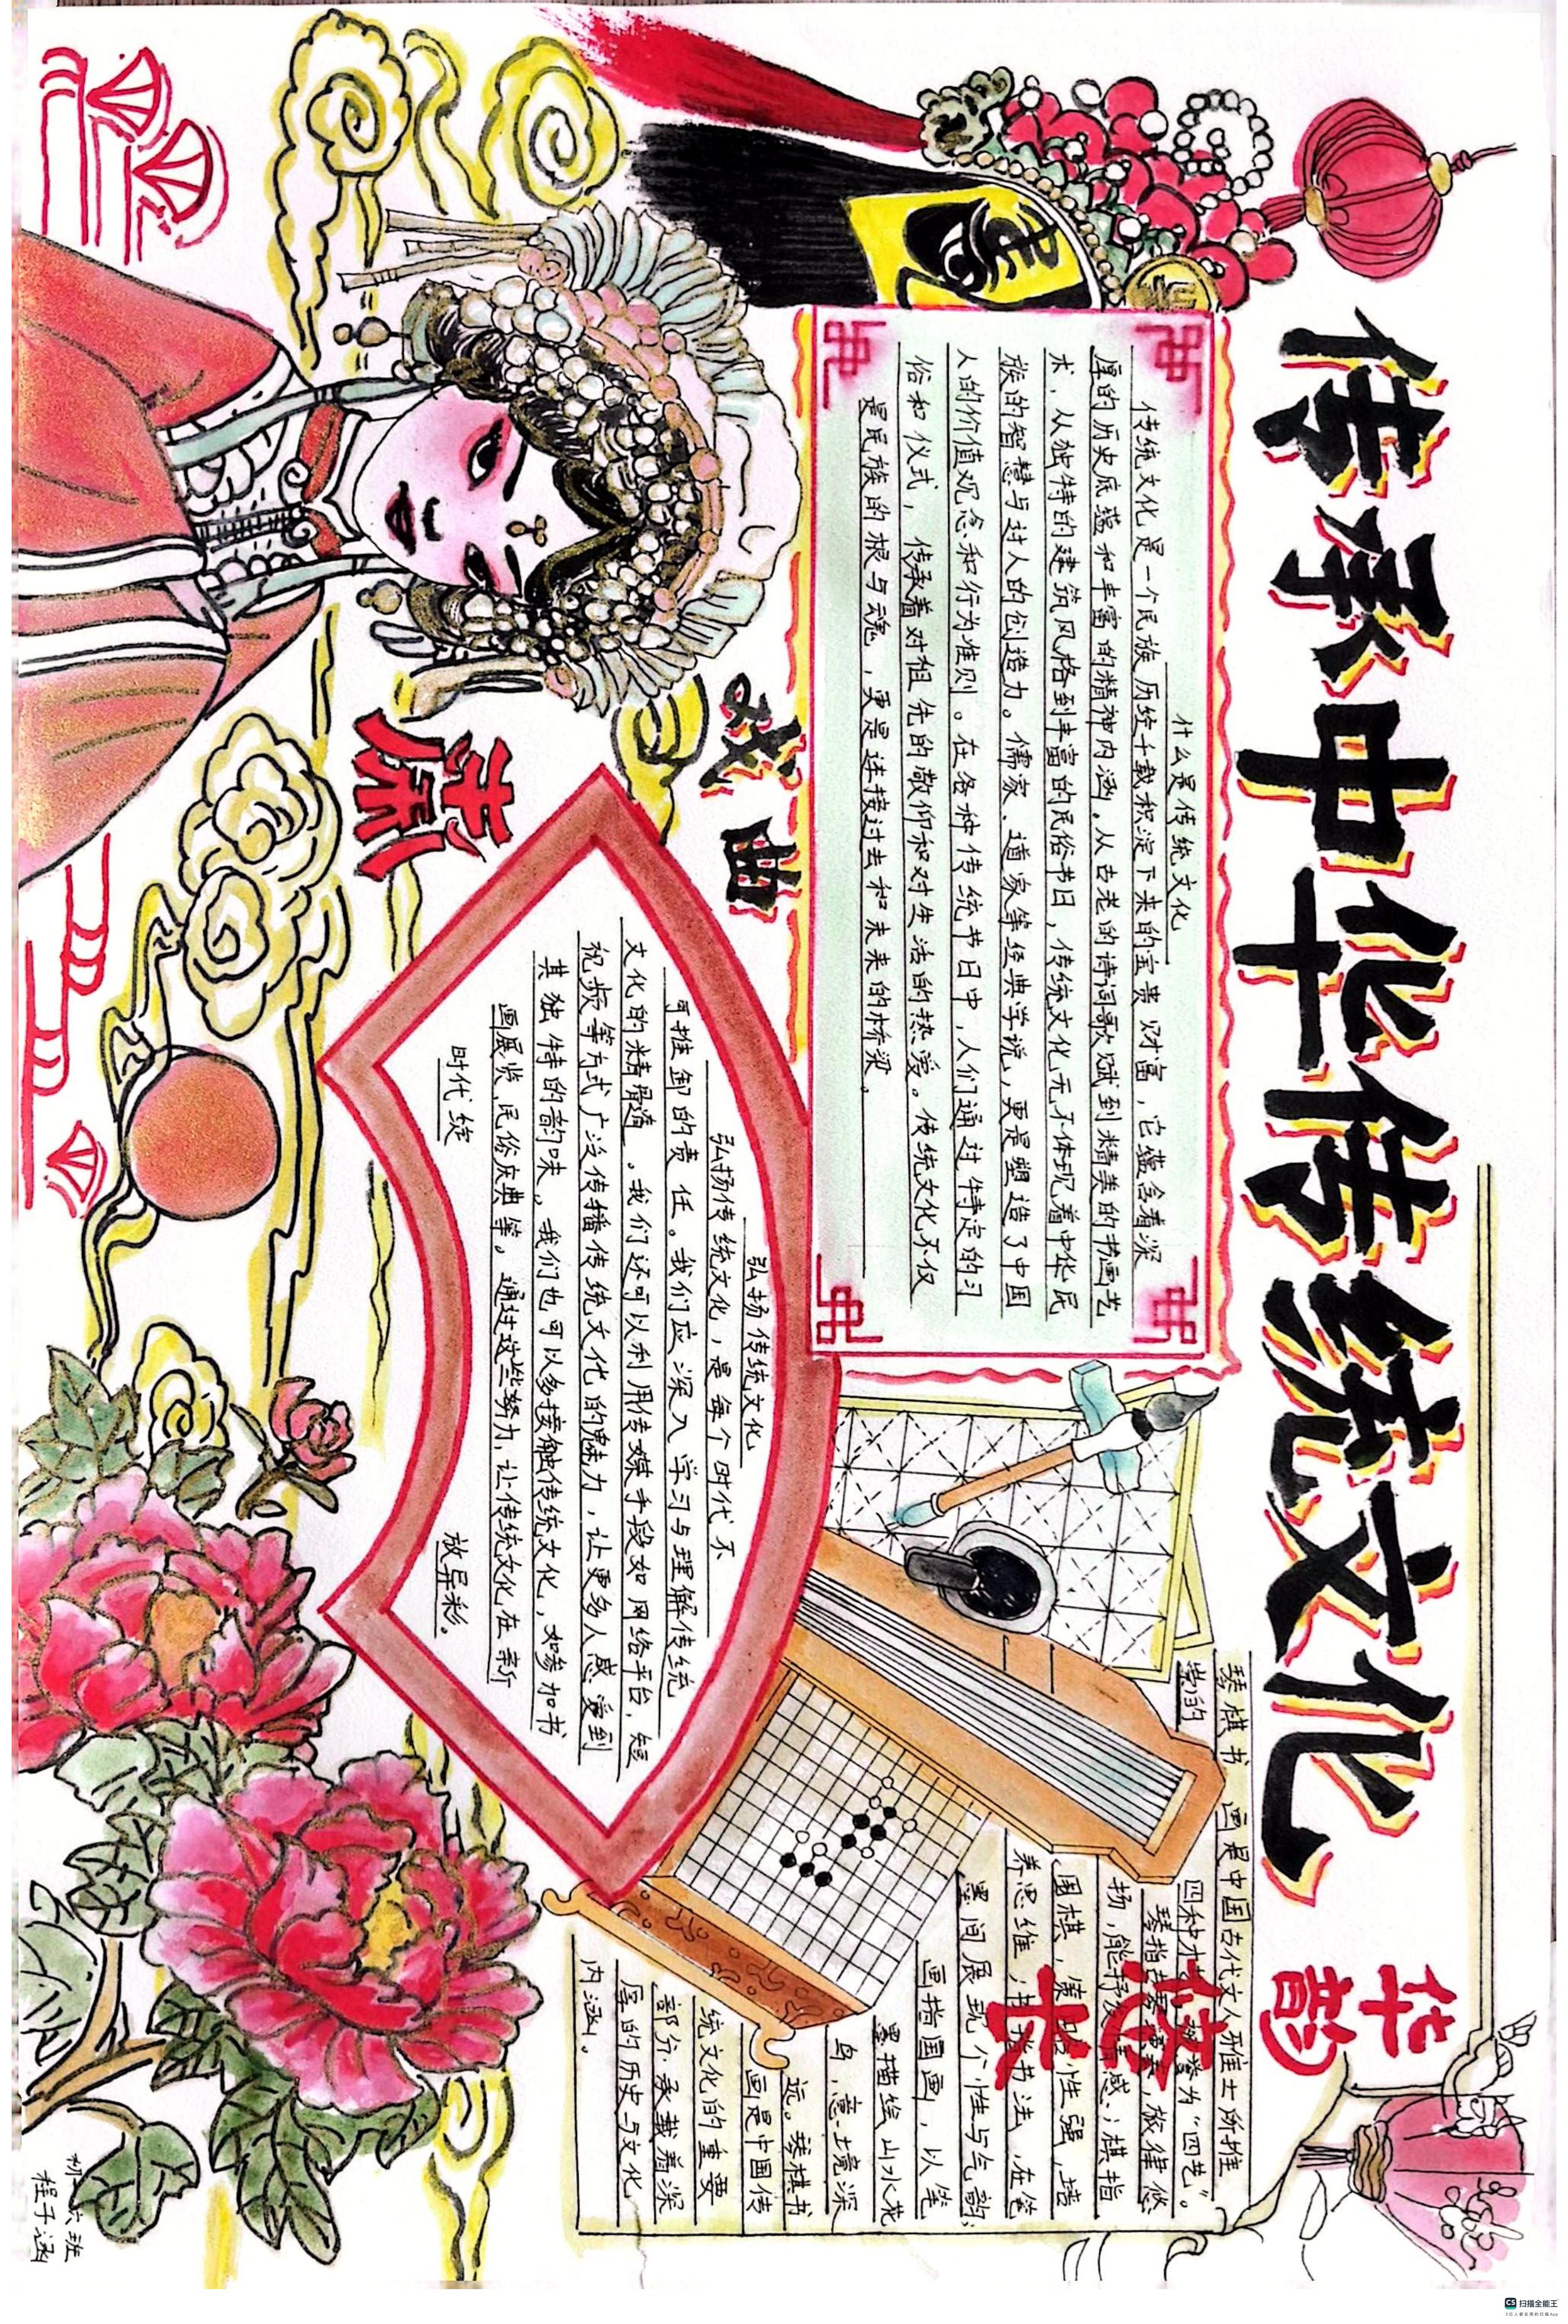 传承中华传统文化
华韵
什么是传统文化
传统文化是一个民族历经千载积淀下来的宝贵财富，它蕴含着深
厚的历史底蕴和丰富的精神内涵。从古老的诗词歌赋到精美的书画艺
术，从独特的建筑风格到丰富的民俗节日，传统文化无不体现着中华民
族的智慧与过人的创造力。儒家、道家等经典学说，更是塑造了中国
人的价值观念和行为准则。在各种传统节日中，人们通过特定的习
俗和仪式，传承着对祖先的敬仰和对生活的热爱。传统文化不仅
是民族的根与魂，更是连接过去和未来的桥梁。
戏曲
弘扬传统文化
弘扬传统文化，是每个时代不
可推卸的责任。我们应深入学习与理解传统
文化的精髓。我们还可以利用传媒手段如网络平台，短
视频等方式广泛传播传统文化的魅力，让更多人感受到
其独特的韵味。我们也可以多接触传统文化，如参加书
画展览，民俗庆典等。通过这些努力，让传统文化在新
时代绽
放异彩。
琴棋书画是中国古代文人雅士所推
崇的
四种才 誉为“四艺”。
琴指古琴 奏，旋律悠
扬，能抒发情感；棋指
围棋，策略性强，培
养思维；书指书法，在笔
墨间展现个性与气韵；
画指国画，以笔
墨描绘山水花
鸟，意境深
远。琴棋书
画是中国传
统文化的重要
部分，承载着深
厚的历史与文化
内涵。
六班
程子涵
CS 扫描全能王
3亿人都在用的扫描App